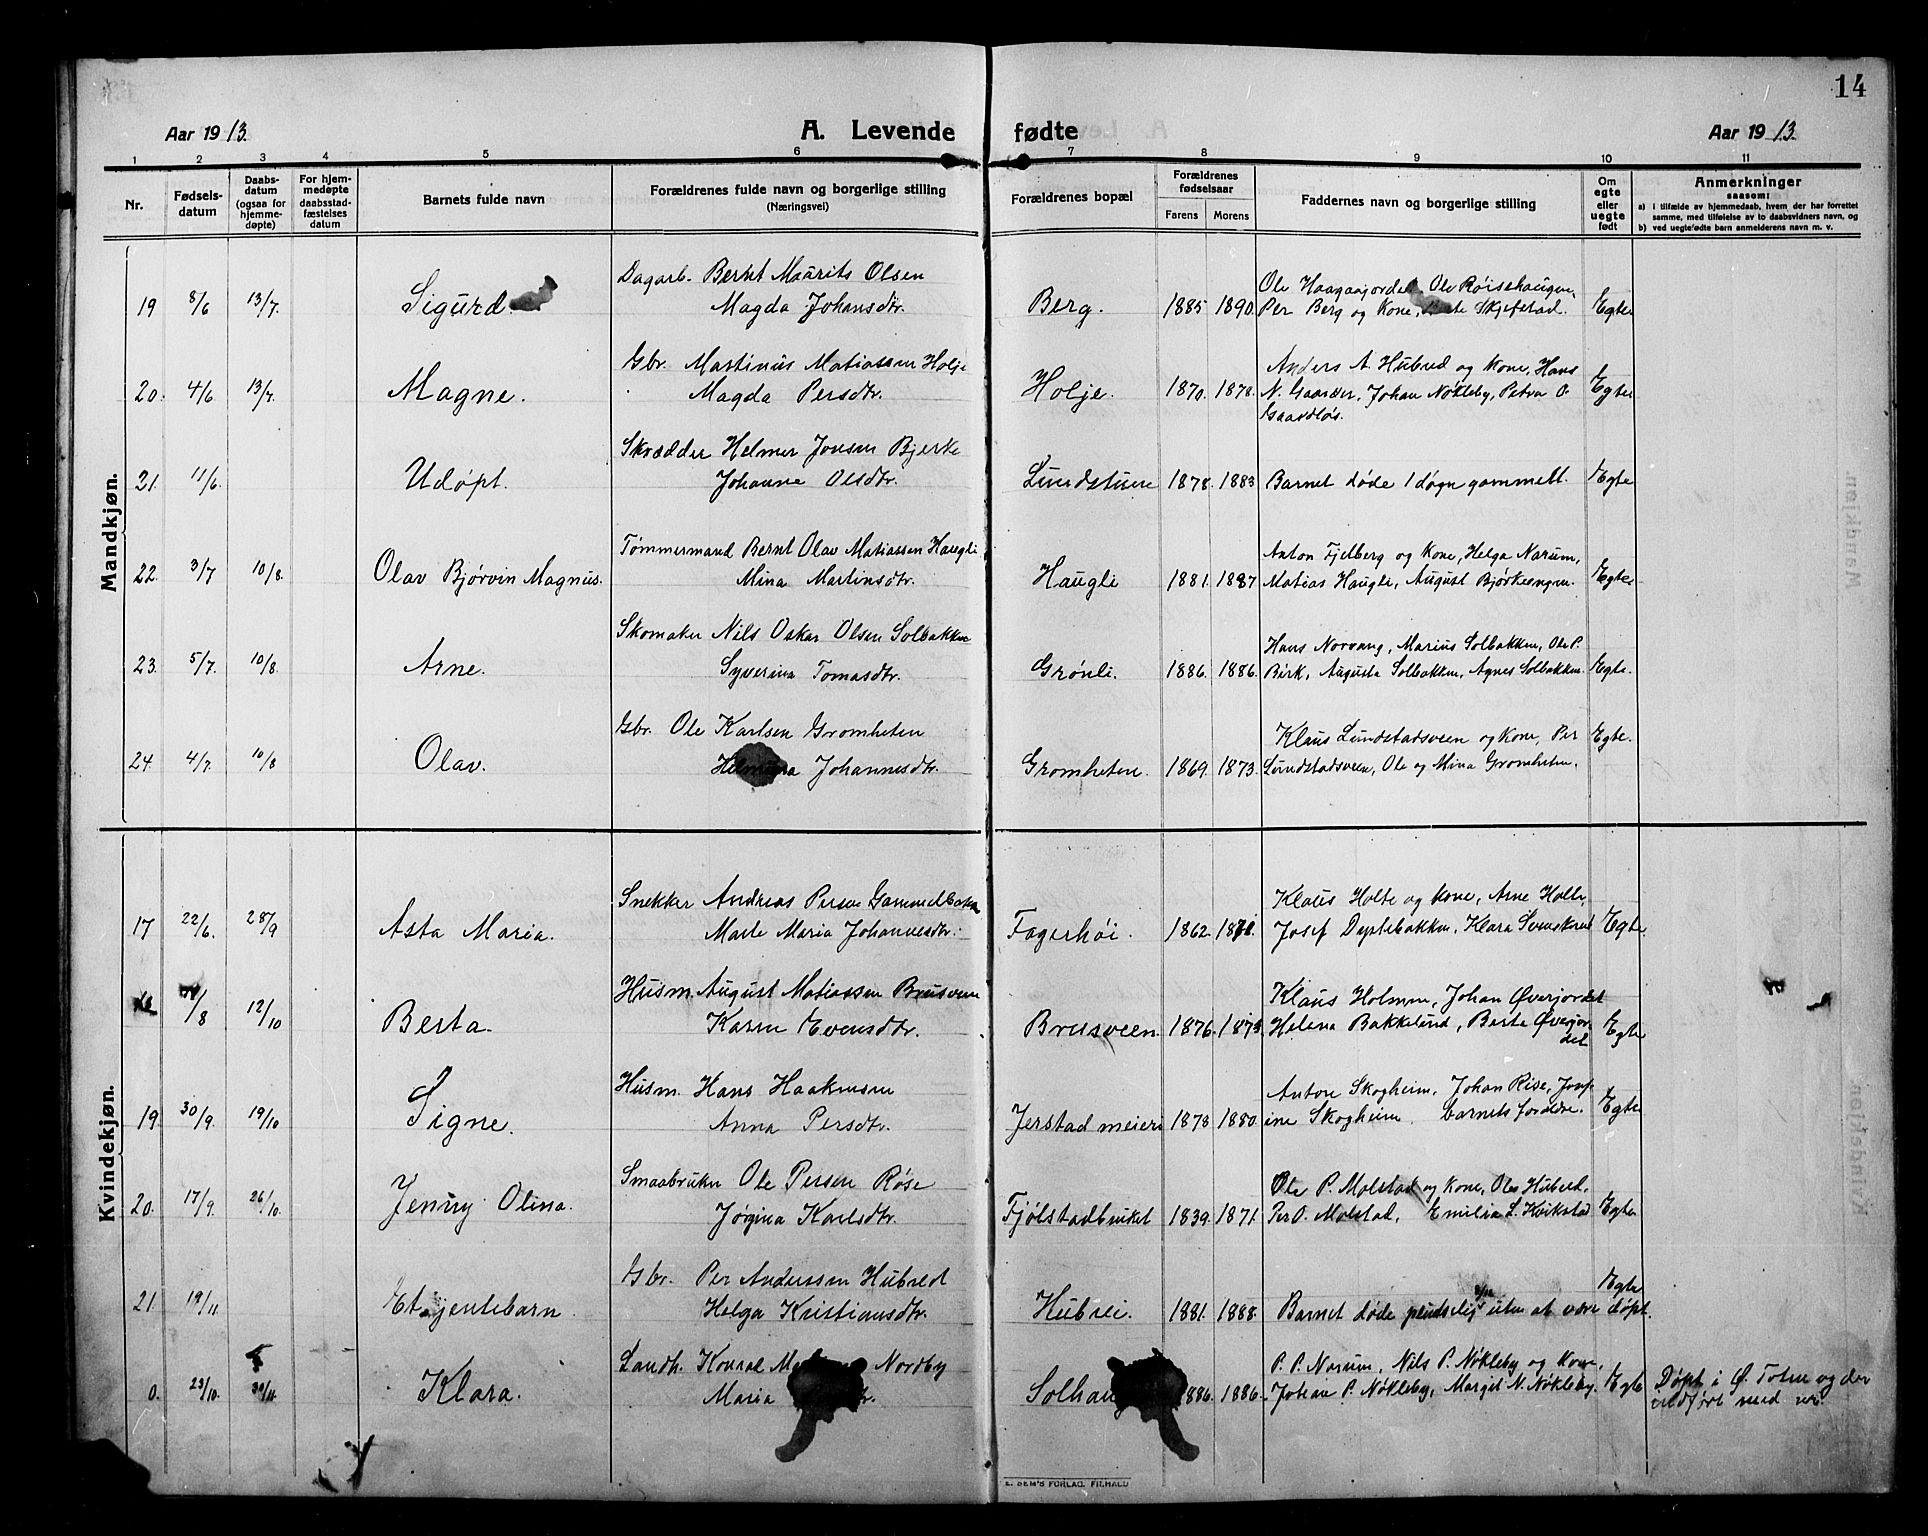 14
Aar 1913.
A. Levende fødte
Aar 1913.
1 2 3 4 5 6 7 8 9 10 11
Nr.
Fødsels-
datum
Daabs-
datum
(ogsaa for
hjemme-
døpte)
For hjem-
medøpte
daabsstad-
fæstelses
datum
Barnets fulde navn
Forældrenes fulde navn og borgerlige stilling
(Næringsvei)
Forældrenes bopæl
Forældrenes
fødselsaar
Farens Morens
Faddernes navn og borgerlige stilling
Om
egte
eller
uegte
født
Anmerkninger
saasom:
a) i tilfælde av hjemmedaab, hvem der har forrettet
samme, med tilføielse av to daabsvidners navn, og
b) ved uegtefødte barn anmelderens navn m. v.
Mandkjøn.
Dagarb. Bernt Maurits Olsen
Ole Haagaajordet, Ole Røisehaugen,
19 8/6 13/7. Sigurd. Magda Johansdtr. Berg. 1885 1890. Per Berg og Kone, Skjefstad. Egte
Gbr. Martinus Matiassen Holje
Anders A. Hubred og Kone, Hans
20. 4/6 13/7. Magne. Magda Persdtr. Holje. 1870. 1878. N. Gaarder, Johan Nøkleby, Petra O. Egte
Gaardløs.
Skrædder Helmer Jonsen Bjerke
21. 11/6. Udøpt. Johanne Olsdtr. Lundstuen 1878. 1883 Barnet døde 1 døgn gammelt. Egte
Tømmermand Bernt Olav Matiassen Haugli
Anton Fjelberg og Kone, Helga Narum,
22. 3/7 10/8. Olav Bjørvin Magnus. Mina Martinsdtr. Haugli 1881. 1887 Matias Haugli, August Bjørkeengen. Egte
Skomaker Nils Oskar Olsen Solbakken
Hans Norvang, Marius Solbakken, Ole P.
23. 5/7. 10/8. Arne. Syverina Tomasdtr. Grønli. 1886. 1886. Birk, Augusta Solbakken, Agnes Solbakken. Egte.
Gbr. Ole Karlsen Gromheten
Klaus Lundstadsveen og Kone, Per Egte.
24. 4/7. 10/8 Olav. Johannesdtr. Gromheten. 1869. 1873. Lundstadsveen, Ole og Mina Gromheten.
Kvindekjøn.
Snekker Andreas Persen Gammelbakken
Klaus Holte og Kone, Arne Holte,
17 22/6. 28/9 Asta Maria. Marte Maria Johannesdtr. Fagerhøi. 1862. Josef Dystebakken, Klara Svenskerud Egte.
Husm. August Matiassen Brusveen
Klaus Holmen, Johan Øverjordet
/8 12/10 Berta. Karen Evensdtr. Brusveen. 1876. 1873. Helena Bakkelund, Berta Øverjor- Egte
det
Husm. Hans Haakensen
Anton Skogheim, Johan Rise, Josef-
19. 30/9. 19/10 Signe. Anna Persdtr. Jerstad meieri 1878 1880. ine Skogheim. barnets forældre. Egte
Smaabruker Ole Persen Røse
Ole P. Molstad og Kone, Ole Hubred,
20. 17/9. 26/10. Jenny Olina. Jørgina Karlsdtr. Fjølstadbruket 1839. 1871. Per O. Molstad, Emilia L. Kvikstad Egte
Gbr. Per Anderssen Hubred
Egte
21. 19/11 Et jentebarn. Helga Kristiansdtr. Hubrei. 1881. 1888. Barnet døde pludselig uten at være døpt.
Landh. Konral Nordby
P. P. Narum, Nils P. Nøkleby og Kone,
0. 23/10. 30/11 Klara. Maria Solhaug 1886. 1886. Johan P. Nøkleby, Margit N. Nøkleby. Egte Døpt i Ø. Toten og der
indført med nr.
E. SEM'S FORLAG. FR.HALD